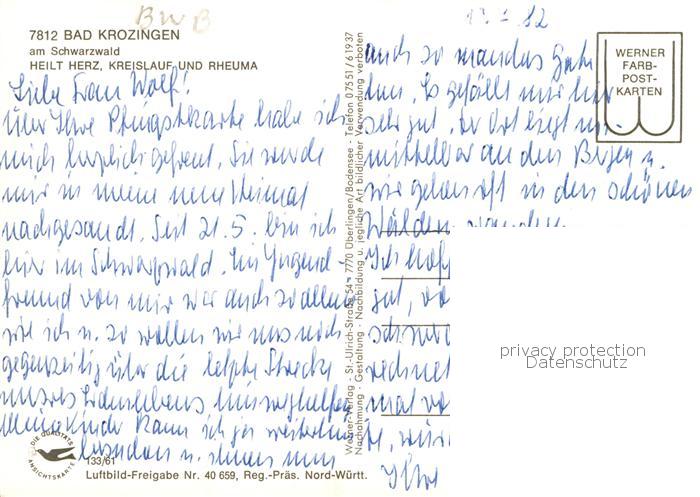 BWB
7812 BAD KROZINGEN
am Schwarzwald
HEILT HERZ, KREISLAUF UND RHEUMA
Liebe Frau Wolf!
Über Ihre Pfingstkarte habe ich
mich herzlich gefreut. Sie wurde
mir in meine neue Heimat
nachgesandt. Seit 21.5. bin ich
hier im Schwarzwald. Ein Jugend-
freund von mir war auch so allein
wie ich u. so wollen wir uns noch
gegenseitig über die letzte Strecke
unseres Erdenlebens hinweghelfen
Meine Kinder kann ich ja weiterhin
besuchen u.
133/61
DIE QUALITÄTS
ANSICHTSKARTE
Luftbild-Freigabe Nr. 40 659, Reg.-Präs. Nord-Württ.
Werner-Verlag - St.-Ulrich-Straße 54 - 7770 Überlingen/Bodensee - Telefon 0 75 51 / 6 19 37
Nachahmung - Gestaltung - Nachbildung u. jegliche Art bildlicher Verwendung verboten
82
auch so manches Gute
tun. Es gefällt mir hier
sehr gut. Der Ort liegt un-
mittelbar an den Bergen u.
wir gehen oft in den schönen
Wäldern wandern
Ich hoff
gut, 
rechnet
mal
Ihre
WERNER
FARB-
POST-
KARTEN
privacy protection
Datenschutz